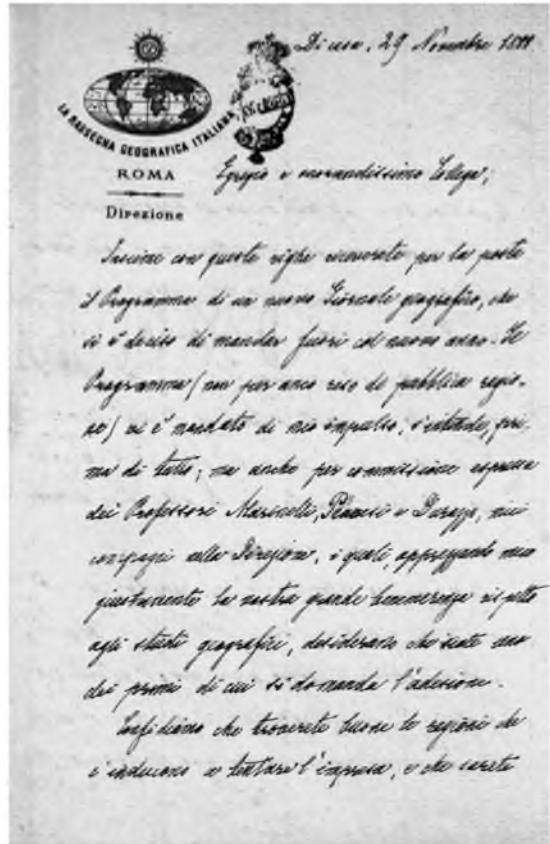 LA RASSEGNA GEOGRAFICA ITALIANA
ROMA
Direzione
Di casa, 29 Novembre
Egregio e onorandissimo Collega,
Insieme con queste righe riceverete per la posta
il Programma di un nuovo Giornale geografico, che
si è deciso di mandar fuori col nuovo anno. Il
Programma (non per anco reso di pubblica ragio-
ne) vi è mandato di mio impulso, s'intende, pri-
ma di tutto; ma anche per commissione espressa
dei Professori Marinelli, Pennesi e Durazzo, miei
compagni nella Direzione, i quali, apprezzando meco
giustamente la vostra grande benemerenza rispetto
agli studi geografici, desiderano che siate uno
dei primi di cui si domanda l'adesione.
Confidiamo che troverete buone le ragioni che
c'inducono a tentare l'impresa, e che sarete